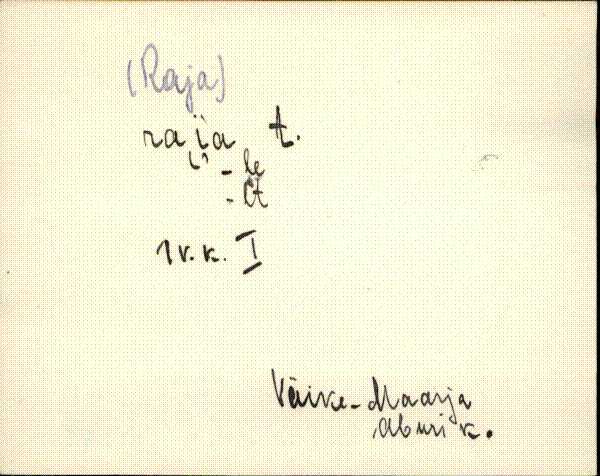 (Raja)
rai̯i̯a t.
-le
-lt
1 v.k. I
Väike-Maarja
Aburi k.